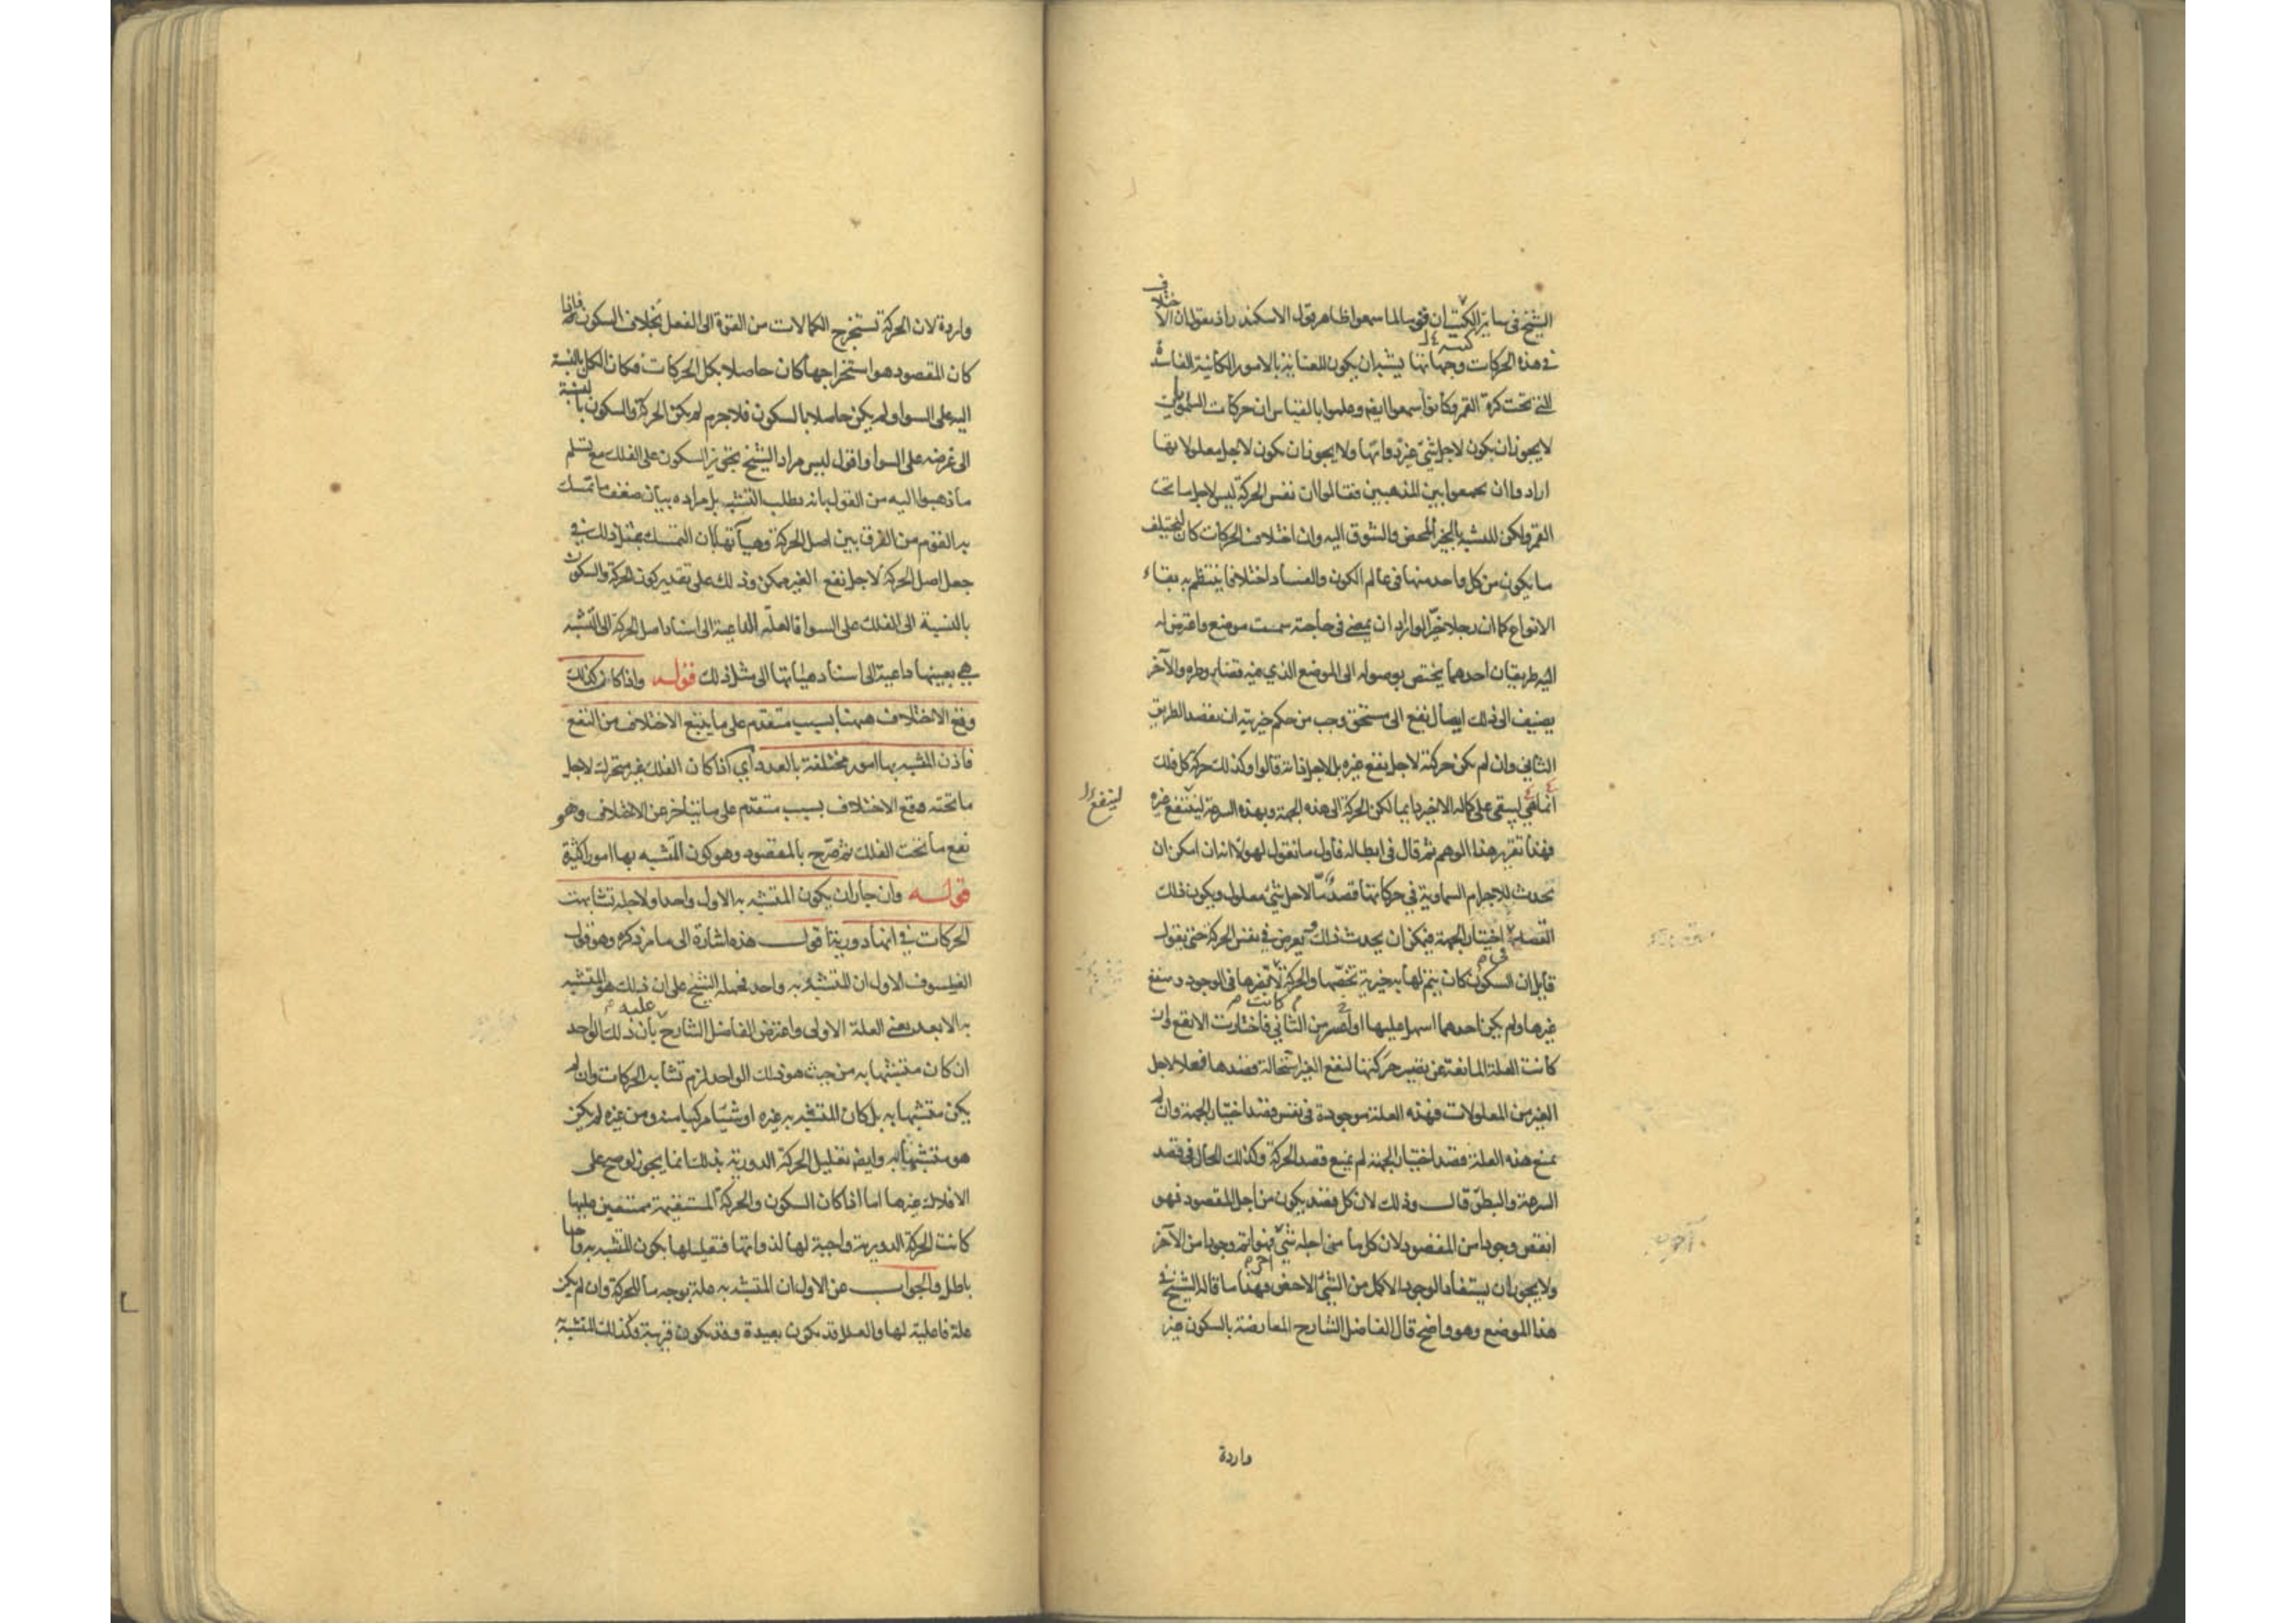 الشيخ في سائر الكتب ان قوما لما سمعوا ظاهر قول الاسكندر اذ يقول ان الاختلاف
في هذه الحركات وجهاتها يشبه ان يكون للعناية بالامور الكائنة الفاسدة
التي تحت كرة القمر وكانوا سمعوا ايضا وعلموا بالقياس ان حركات السموات
لا يجوز ان يكون لاجل شئ غير ذواتها ولا يجوز ان يكون لاجل معلولاتها
ارادوا ان يجمعوا بين المذهبين فقالوا ان نفس الحركة ليس لاجل ما تحت
القمر ولكن للتشبه بالخير المحض والشوق اليه وان اختلاف الحركات كان ليختلف
ما يكون من كل واحد منها في عالم الكون والفساد اختلافا ينتظم به بقاء
الانواع كما ان رجلا خيرا لو اراد ان يمضي في حاجته سمت موضع واعترض له
اليه طريقان احدهما يختص بوصوله الى الموضع الذي فيه قضاء وطره والآخر
يضيف الى ذلك ايصال نفع الى مستحق وجب من حكم خيريته ان يقصد الطريق
الثاني وان لم يكن حركته لاجل نفع غيره بل لاجل ذاته قالوا وكذلك حركة كل فلك
انما هي ليبقى على كماله الاخير دايما لكن الحركة الى هذه الجهة وبهذه السرعة لينتفع غيره
لينفع
فهذا تقرير هذا الوهم ثم قال في ابطاله فاول ما نقول لهؤلاء انه ان امكن ان
تحدث للاجرام السماوية في حركاتها قصد ما لاجل شئ معلول ويكون ذلك
القصد في اختيار الجهة فيمكن ان يحدث ذلك ويعرض في نفس الحركة حتى يقول
قايل ان السكون كان يتم لها به خيرية تخصها والحركة لا تضرها في الوجود وينفع
غيرها ولم يكن احدهما اسهل عليها او اعسر من الثاني فاختارت الانفع وان
كانت العلة المانعة عن تصير حركتها لنفع الغير استحالة قصدها فعلا لاجل
الغير من المعلولات فهذه العلة موجودة في نفس قصد اختيار الجهة وان لم
يمنع هذه العلة قصد اختيار الجهة لم يمنع قصد الحركة وكذلك الحال في قصد
السرعة والبطؤ قال وذلك لان كل قصد يكون من اجل المقصود فهو
انقص وجودا من المقصود لان كل ما من اجله شئ آخر فهو اتم وجودا من الآخر
ولا يجوز ان يستفاد الوجود الاكمل من الشئ الاخس فهذا ما قاله الشيخ في
هذا الموضع وهو واضح قال الفاضل الشارح المعارضة بالسكون غير
واردة
واردة لان الحركة تستخرج الكمالات من القوة الى الفعل بخلاف السكون فاذا
كان المقصود هو استخراجها كان حاصلا بكل الحركات فكان الكل بالنسبة
اليه على السواء ولم يكن حاصلا بالسكون فلا جرم لم يكن الحركة والسكون بالنسبة
الى غرضه على السوا واقول ليس مراد الشيخ تجويز السكون على الفلك مع تسلم
ما ذهبوا اليه من القول بانه يطلب التشبه بل مراده بيان ضعف ما تمسك
به القوم من الفرق بين اصل الحركة وهيآتها بان التمسك بمثل ذلك في
جعل اصل الحركة لاجل نفع الغير ممكن وذلك على تقدير كون الحركة والسكون
بالنسبة الى الفلك على السوا فالعلة الداعية الى اسناد اصل الحركة الى التشبه
هي بعينها داعية الى اسناد هيئاتها الى مثل ذلك قوله واذا كان كذلك
وقع الاختلاف ههنا بسبب متقدم على ما يتبع الاختلاف من النفع
فاذن المتشبه بها امور مختلفة بالعدد اي اذا كان الفلك غير متحرك لاجل
ما تحته وقع الاختلاف بسبب متقدم على ما يتاخر عن الاختلاف وهو
نفع ما تحت الفلك ثم صرح بالمقصود وهو كون المتشبه بها امورا كثيرة
قوله وان جاز ان يكون المتشبه به الاول واحدا ولاجله تشابهت
الحركات في انها دورية اقول هذه اشارة الى ما مر ذكره وهو قول
الفيلسوف الاول ان المتشبه به واحد فحمله الشيخ على ان ذلك هو المتشبه
به الابعد يعني العلة الاولى واعترض الفاضل الشارح عليه بان ذلك الواحد
ان كان متشبها به من حيث هو ذلك الواحد لزم تشابه الحركات وان لم
يكن متشبها به بل كان المتشبه به غيره او شيئا مركبا منه ومن غيره لم يكن
هو متشبها به وايضا تعليل الحركة الدورية بذلك انما يجوز لو صح على
الافلاك غيرها اما اذا كان السكون والحركة المستقيمة ممتنعين عليها
كانت الحركة الدورية واجبة لها لذواتها فتعليلها بكون المتشبه به واحدا
باطل والجواب عن الاول ان المتشبه به علة بوجه ما للحركة وان لم يكن
علة فاعلية لها والعلل قد يكون بعيدة وقد يكون قريبة وكذلك المتشبه به